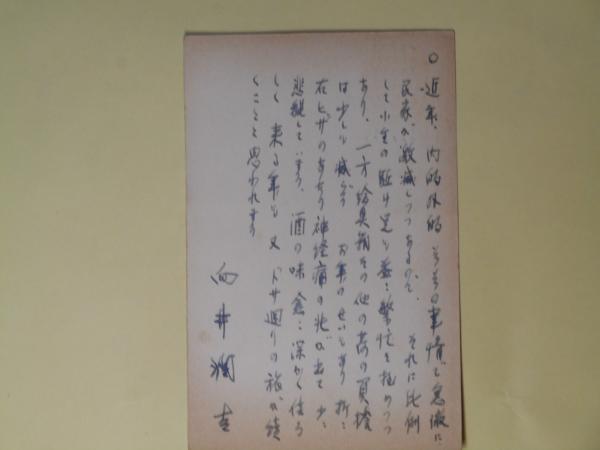 ○近年、内的外的 その事情で急激に
民家が激減しつつあるので、それに比例
して小生の駈け足も益々繁忙を極めつつ
あり、一方絵具類その他の荷の負担
は少しも減らず お年のせいもあり 折々
右ヒザのあたり神経痛の兆が出て少々
悲観しています。酒の味愈々深かく
しく 来る年も又 ドサ廻りの旅が続
くことと思われます
向井潤吉